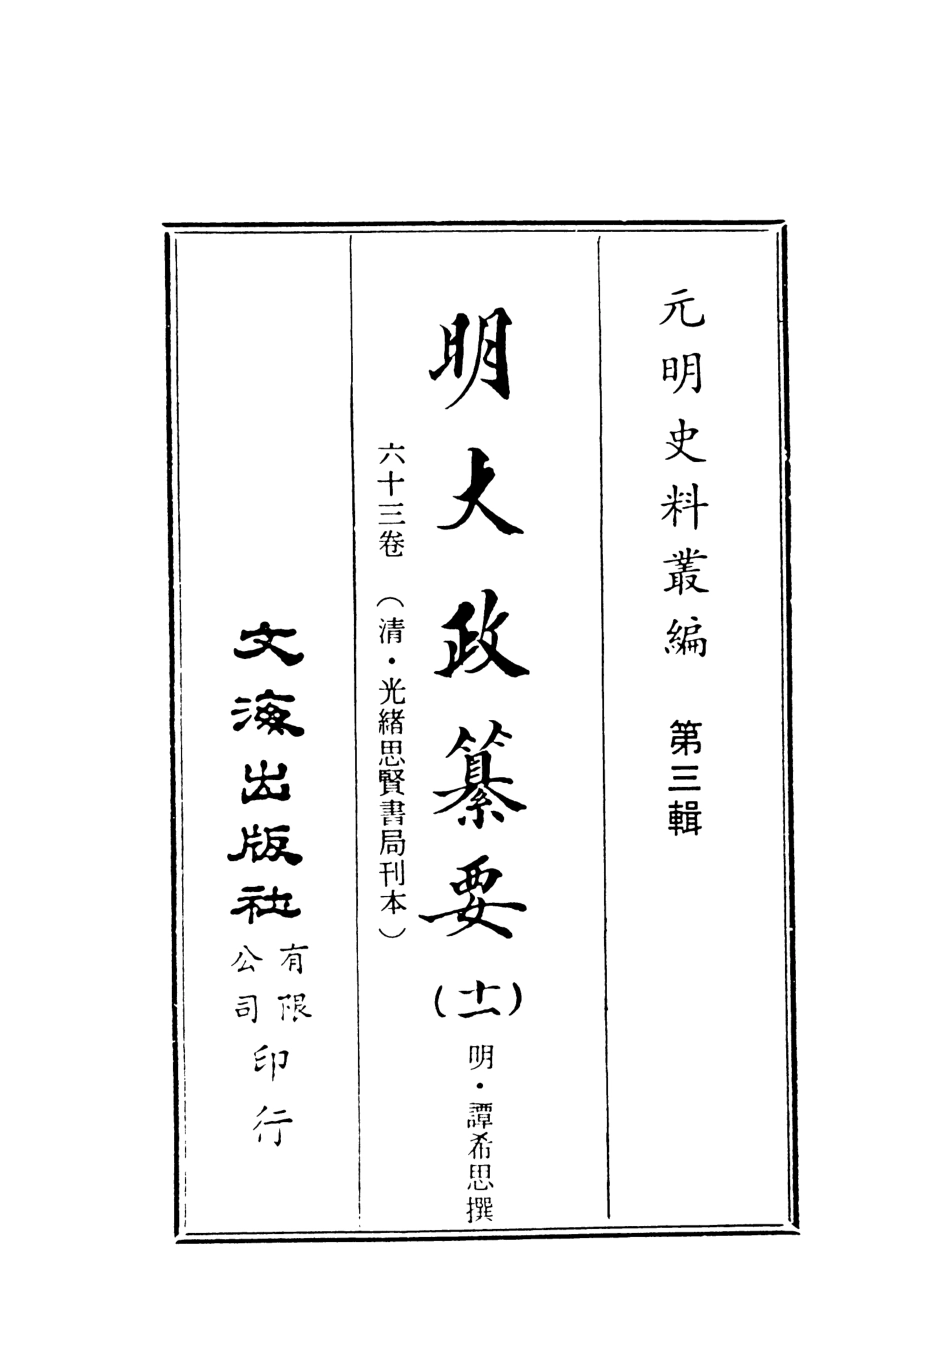 元明史料叢編 第三輯
明大政纂要(十一) 明·譚希思撰
六十三卷 (清·光緒思賢書局刊本)
文海出版社有限公司印行